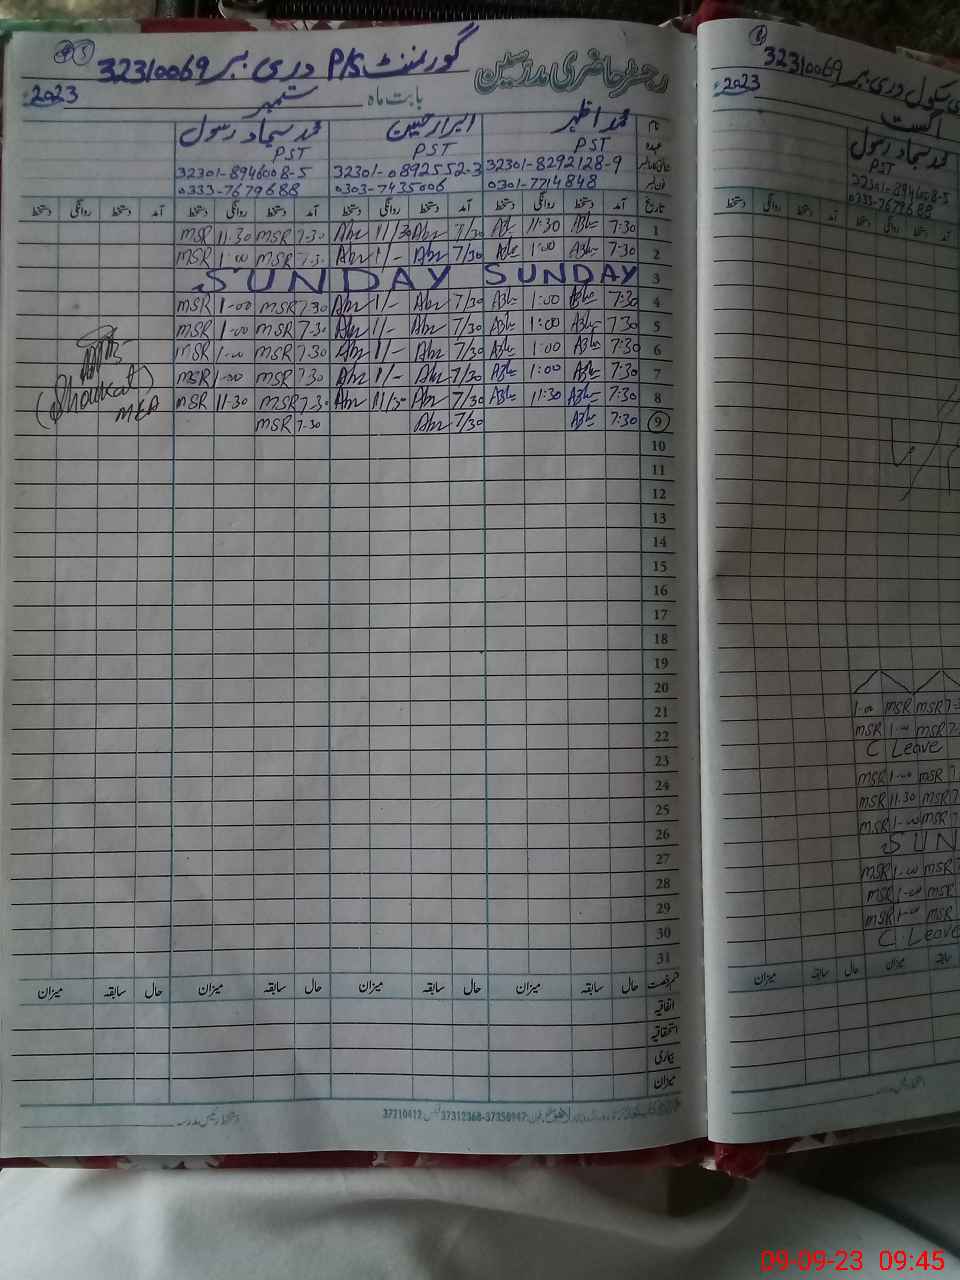 رجسٹر حاضری مدرسین
گورنمنٹ P/S دری نمبر 32310069
بابت ماہ ستمبر 2023ء
نام محمد اظہر ابرار حسین محمد سجاد رسول
عہدہ PST PST PST
32301-8292128-9 32301-0892552-3 32301-8946008-5
0301-7714848 0303-7435006 0333-7679688
تاریخ آمد دستخط روانگی دستخط آمد دستخط روانگی دستخط آمد دستخط روانگی دستخط آمد دستخط روانگی دستخط
1 7:30 11:30 7/30 Abr 11/30 Abr 7-30 MSR 11-30 MSR
2 7:30 1:00 7/30 Abr 1/- Abr 7-30 MSR 1-00 MSR
3 SUNDAY SUNDAY
4 7:30 1:00 7/30 Abr 1/- Abr 7-30 MSR 1-00 MSR
5 7:30 1:00 7/30 Abr 1/- Abr 7-30 MSR 1-00 MSR
6 7:30 1:00 7/30 Abr 1/- Abr 7-30 MSR 1-00 MSR
7 7:30 1:00 7/30 Abr 1/- Abr 7-30 MSR 1-00 MSR
8 7:30 11:30 7/30 Abr 11/30 Abr 7-30 MSR 11-30 MSR
9 7:30 7/30 Abr 7-30 MSR
(Shaukat)
MEA
10
11
12
13
14
15
16
17
18
19
20
21
22
23
24
25
26
27
28
29
30
31
قسم رخصت حال سابقہ میزان حال سابقہ میزان حال سابقہ میزان حال سابقہ میزان
اتفاقیہ
استحقاقیہ
بیماری
میزان
37310412 37312368-37350947
دستخط رئیس مدرسہ
سکول دری نمبر 32310069
اگست 2023ء
محمد سجاد رسول
PST
32301-8946008-5
0333-7679688
دستخط روانگی دستخط آمد دستخط روانگی دستخط آمد
1-00 MSR MSR 7-3
MSR 1-00 MSR 7-
C Leave
MSR 1-00 MSR 7
MSR 11-30 MSR 7
MSR 1-00 MSR 7
SUN
MSR 1-00 MSR 7
MSR 1-00 MSR
MSR 1-00 MSR
C Leave
میزان سابقہ حال میزان سابقہ
09-09-23 09:45